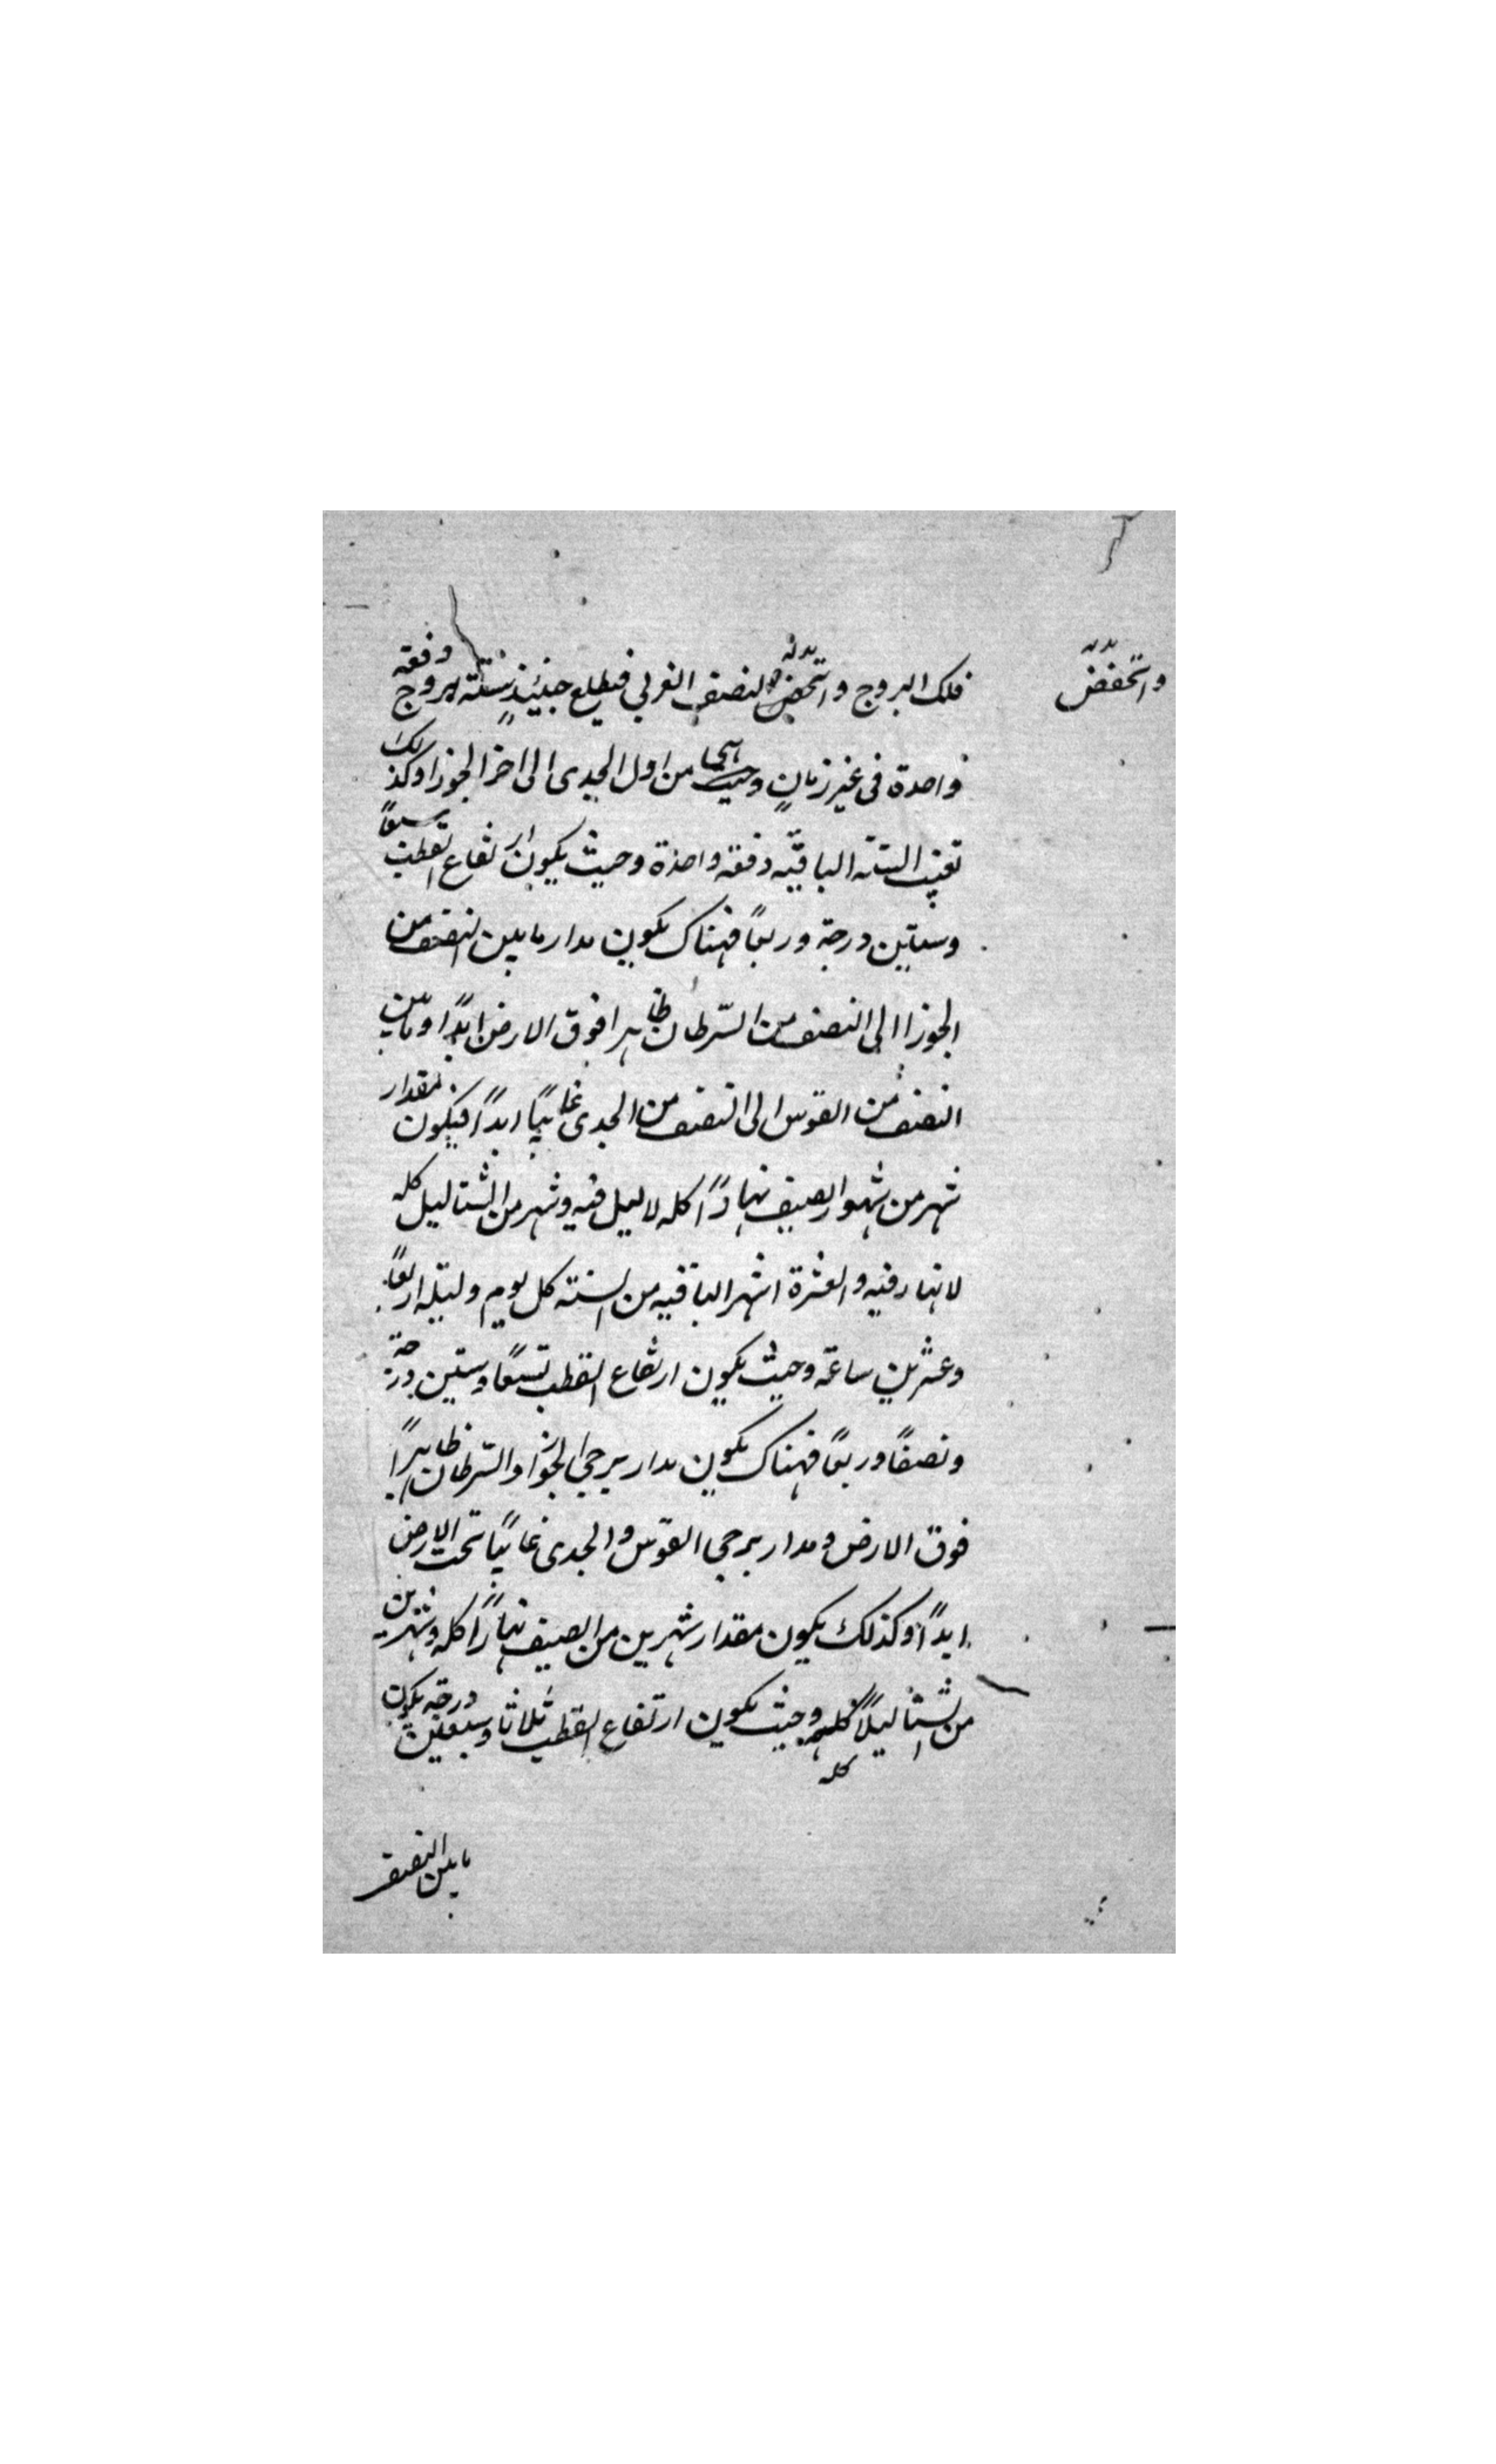 وانخفض
فلك البروج وانخفض النصف الغربي فيطلع حينئذ ستة بروج دفعة
واحدة في غير زمان وهي من اول الجدى الى اخر الجوزا وكذلك
تغيب الستة الباقية دفعة واحدة وحيث يكون ارتفاع القطب سبعاً
وستين درجة وربعاً فهناك يكون مدار ما بين النصف من
الجوزا الى النصف من السّرطان ظاهرا فوق الارض ابداً وما بين
النصف من القوس الى النصف من الجدى غايباً ابداً فيكون مقدار
شهر من شهور الصيف نهاراً كله لا ليل فيه وشهر من الشتا ليل كله
لا نهار فيه والعشرة اشهر الباقيه من السنة كل يوم وليلة اربعاً
وعشرين ساعة وحيث يكون ارتفاع القطب تسعاً وستين درجة
ونصفاً وربعاً فهناك يكون مدار برجي الجوزا والسّرطان ظاهراً
فوق الارض ومدار برجي القوس والجدى غايباً تحت الارض
ابداً وكذلك يكون مقدار شهرين من الصيف نهاراً كله وشهرين
من الشتا ليلاً كله وحيث يكون ارتفاع القطب ثلاثا وسبعين درجة يكون
كله
ما بين النصف